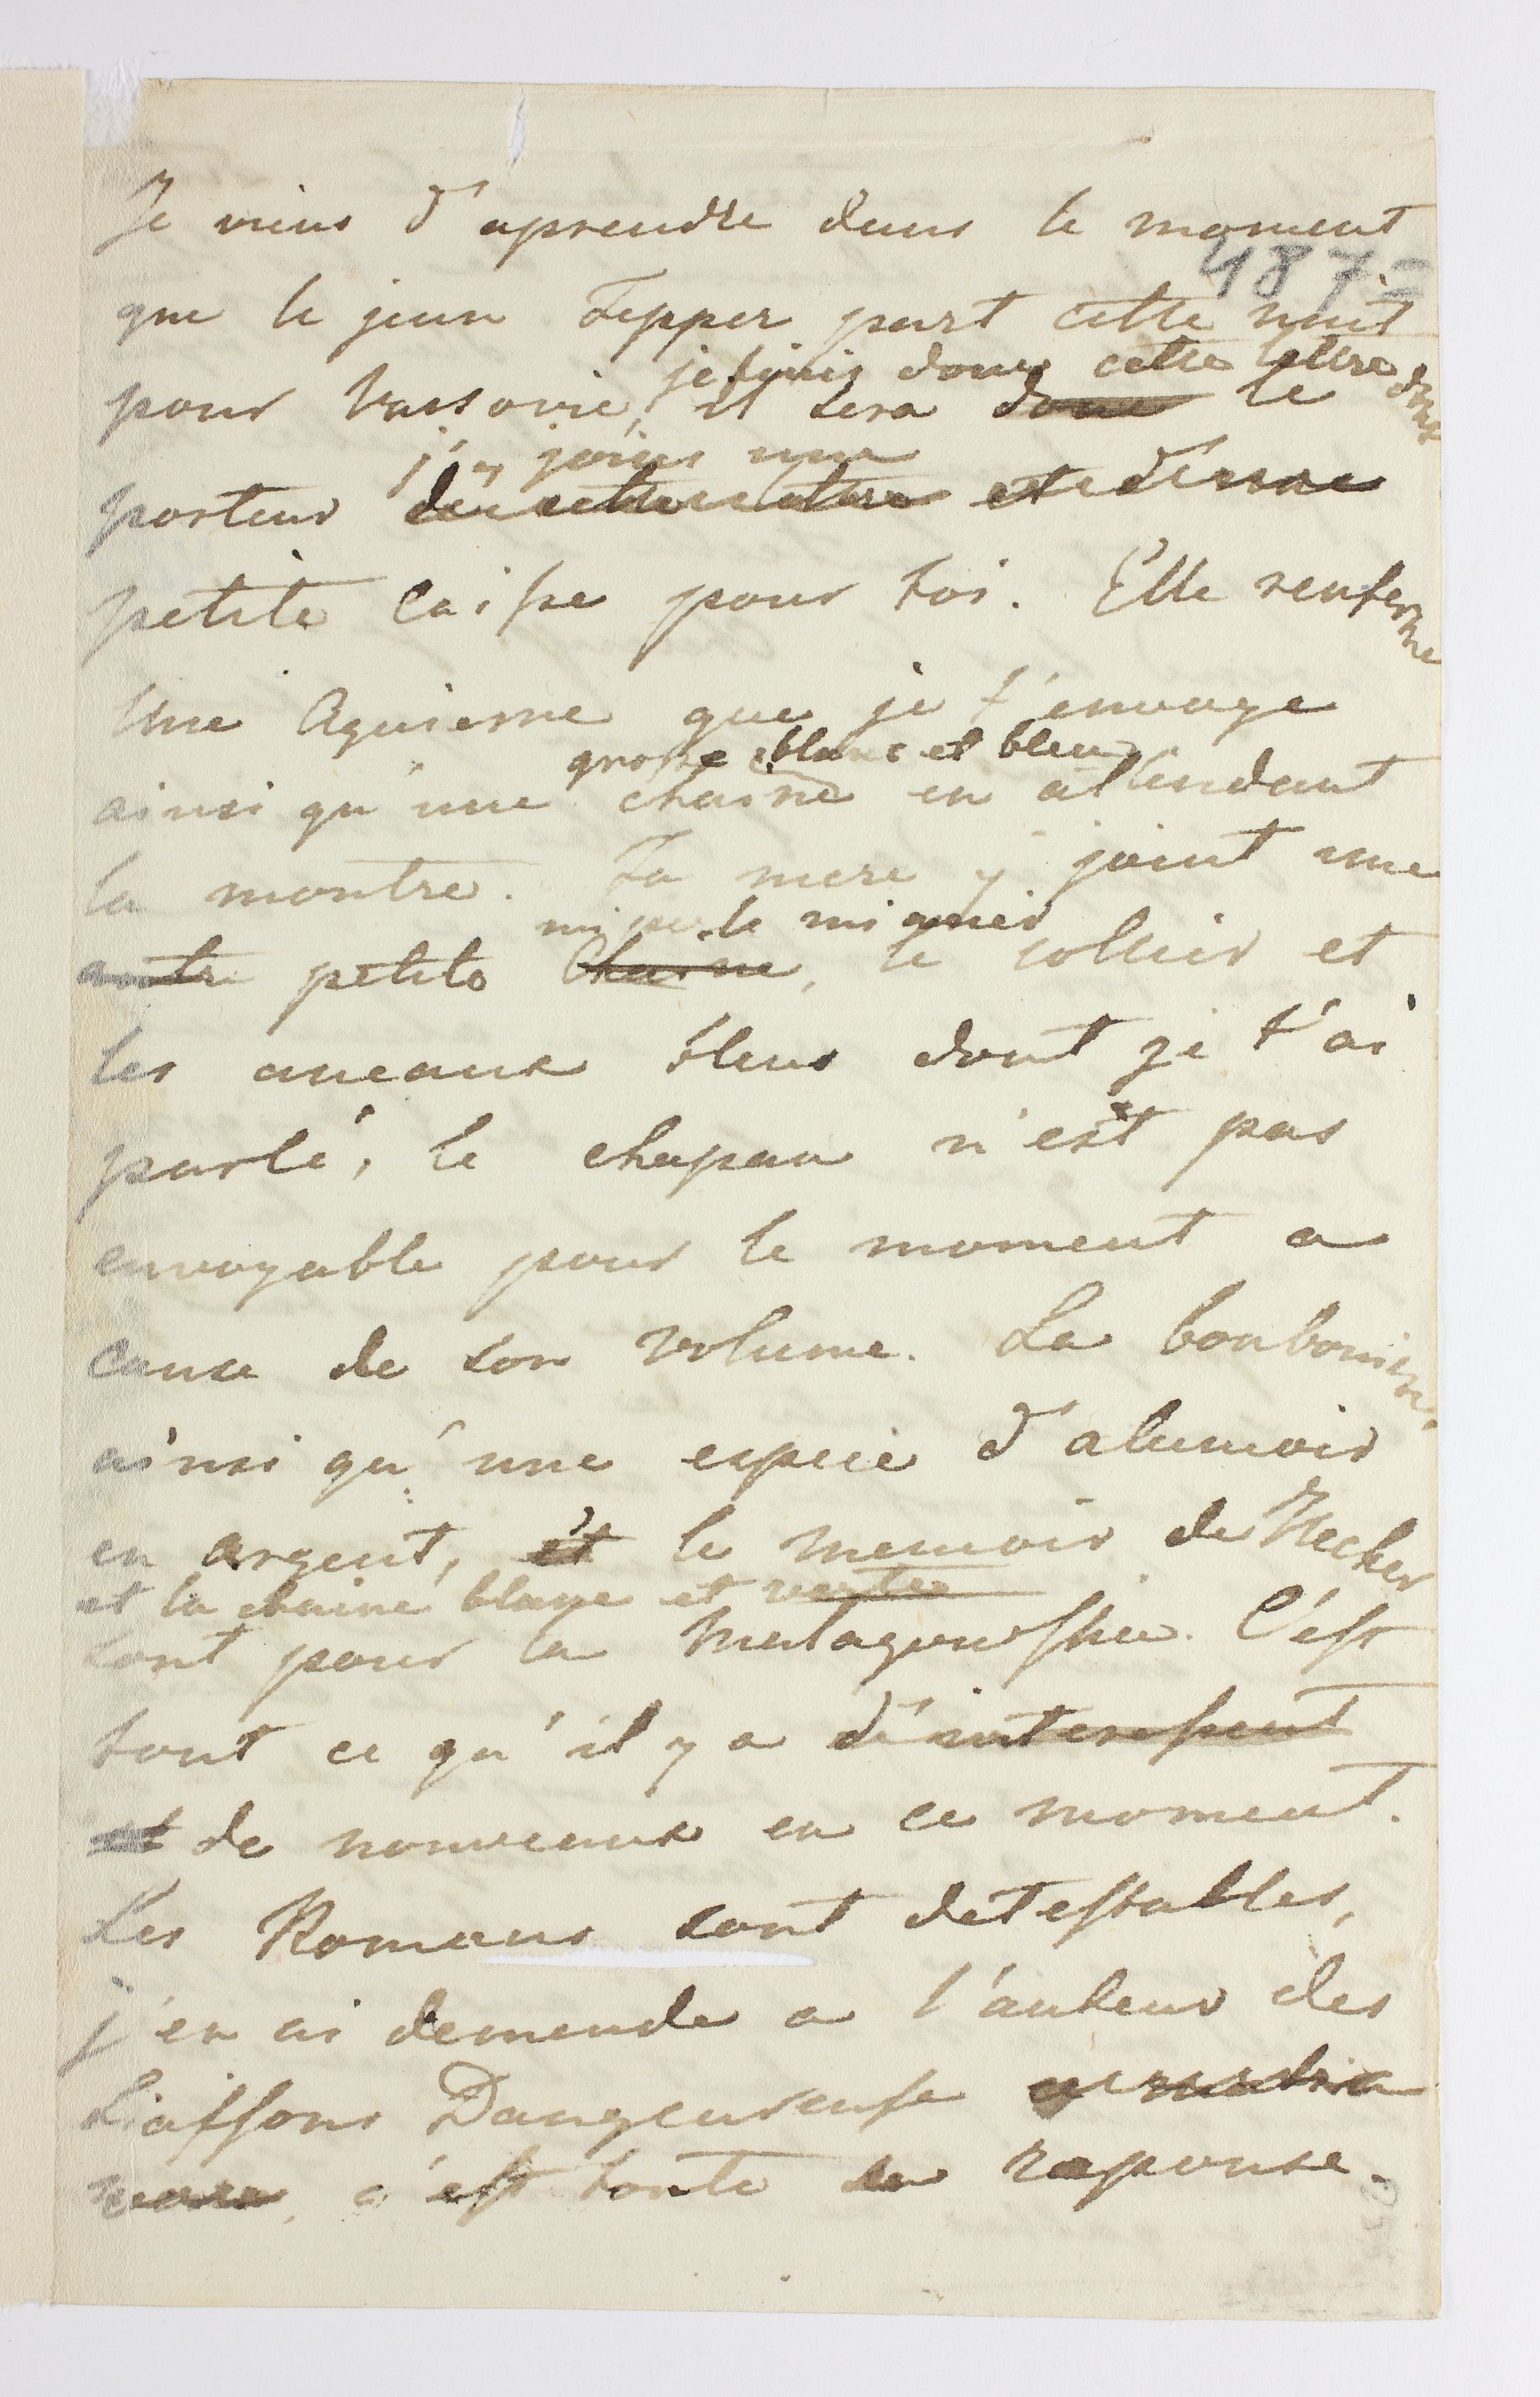 Je viens d'aprendre dans le moment
487
que le jeun Tepper part cette nuit
je finis donc cette lettre dont
pour Varsovie, il sera donc le
j'y joins une
porteur de cette lettre et d'une
petite Caisse pour toi. Elle renferme
Une Aguierre que je t'envoye
grosse blanc et bleu
ainsi qu'une chaine en attendant
la montre. Ta mere y joint une
autre petite Chaine, le collier et
les aneaux bleus dont je t'ai
parlé, le chapau n'est pas
envoyable pour le moment a
cause de son volume. La bonboniere
ainsi qu'une espece d'alumoir
en argent, et le memoir de Necker
et la chaine blanc et verte
sont pour la Malagowska. C'est
tout ce qu'il y a d'interessent
et de nouveaux en ce moment.
Les Romans sont detestables,
j'en ai demende a l'auteur des
Liaissons Dangeureuse
c'est toute sa reponse.